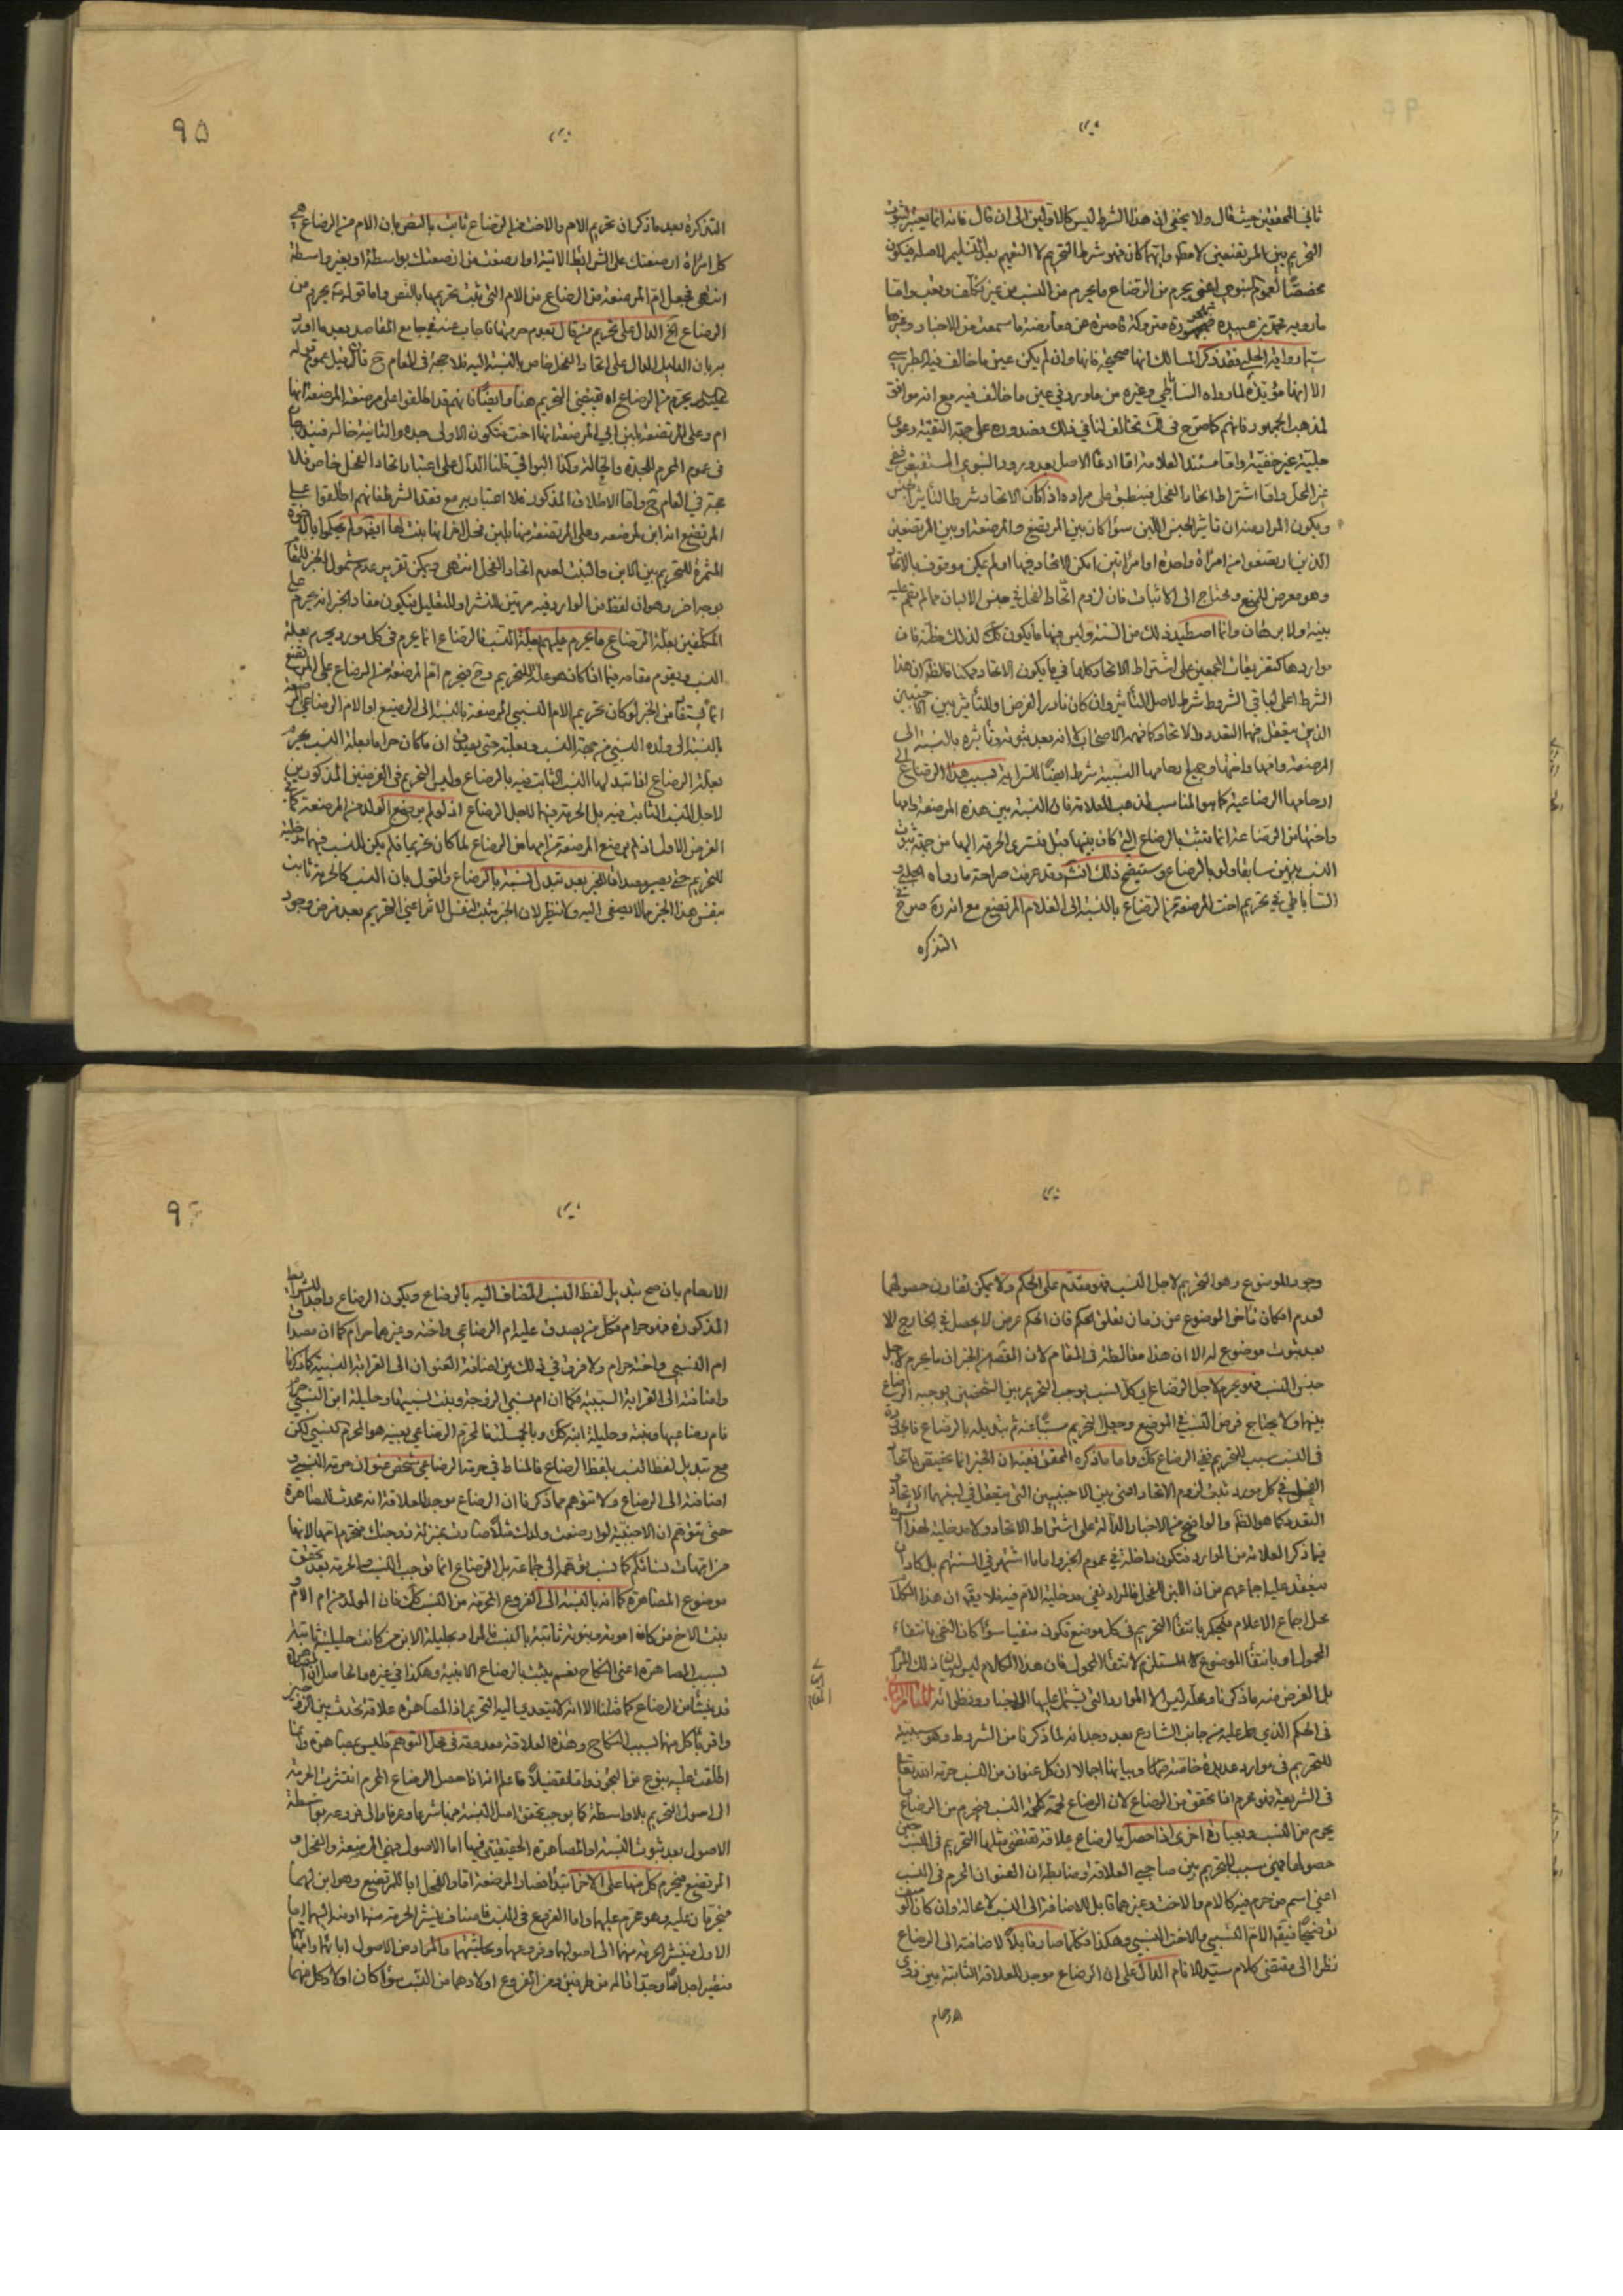 ثاني المحققين حيث قال ولا يخفى ان هذا الشرط ليس كالاولين الى ان قال فانه انما يعتبر لثبوت
التحريم بين المرتضعين لا مطلقا وايهما كان فهو شرط التحريم لا التعميم بعد تسليم الاصل فيكون
مخصصا لعموم النبوي اعني يحرم من الرضاع ما يحرم من النسب من غير تكلف وتعب واما
ما رويه محمد بن عبيده متروكة قاصرة عن معارضة ما سمعت من الاخبار وغيرها
رواية الحلبي فقد ذكر المسالك انها صحيحة فانها وان لم يكن عين ما خالف فيه الطبرسي
الا انها مؤيدة لما رواه الساباطي وغيره من ما ورد في عين ما خالف فيه مع انه موافق
لمذهب الجمهور فانهم كما صرح في لك تخالف لنا في ذلك فصدوره على جهة التقية دعوى
جلية غير خفية واما مستند العلامة اما ادعا الاصل بعد ورود النبوي المستفيض ففي
غير المحل واما اشتراط اتحاد الفحل فينطبق على مراده اذ كان الاتحاد شرط التأثير
ويكون المراد منه ان تاثير الجنس اللبن سوا كان بين المرتضع والمرضعة او بين المرتضعين
الذين ارتضعوا من امراة واحدة او امراتين امكن الاتحاد فيها او لم يمكن موقوف بالاتحاد
وهو معرض للمنع ومحتاج الى الاثبات فان لزوم اتحاد الفحل في جنس الالبان مما لم يقم عليه
بينة ولا برهان وانما اصطيد ذلك من السنة وليس فيها ما يكون كك لذلك مظنة فان
مواردها كتفريعات المجمعين على اشتراط الاتحاد كلها فيما يكون الاتحاد ممكنا فالظاهر ان هذا
الشرط اعلى كباقي الشروط شرط لاصل التأثير وان كان نادر الفرض والتأثير بين الاجنبيين
الذين يتعقل فيهما التعدد والاتحاد كما فهمه الاصحاب لا انه بعد ثبوته وتأثيره بالنسبة الى
المرضعة وامها واختها وجميع ارحامها النسبية شرط ايضا للسراية بسبب هذا الرضاع الى
ارحامها الرضاعية كما هو المناسب لمذهب العلامة فان النسبة بين هذه المرضعة وامها
واختها من الرضاعة انما تثبت بالرضاع الذي كان بينها قبل فتسرى الحرمة اليها من جهة ثبوت
النسب بينهن سابقا ولو بالرضاع وستيضح ذلك انش وقد عرفت صراحة ما رواه الحلبي و
الساباطي في تحريم اخت المرضعة من الرضاع بالنسبة الى الغلام المرتضع مع انه ره صرح في
التذكره
٩٥
التذكرة بعد ما ذكر ان تحريم الام والاخت من الرضاع ثابت بالنص بان الام من الرضاع هي
كل امراة ارضعتك على الشرائط الاتية او ارضعت من ارضعتك بواسطة او بغير واسطة
انتهى فجعل ام المرضعة من الرضاع من الام التي ثبت تحريمها بالنص واما قوله يحرم من
الرضاع الخ الدال على تحريم من قال بعدم حرمتها فاجاب عنه في جامع المقاصد بعد ما اورد
بربان الدليل الدال على اتحاد الفحل خاص بالنسبة اليه فلا حجة في العام ح قال فان قيل عموم قوله
يحرم من الرضاع اه يقتضي التحريم هنا وايضا فانهم قد اطلقوا على مرضعة المرضعة انها
ام وعلى المرتضعة بلبن ابي المرضعة انها اخت فتكون الاولى جدة والثانية خالة فيندرجان
في عموم المحرم للجدة والخالة وكذا البواقي قلنا الدال على اعتبار اتحاد الفحل خاص فلا
حجة في العام ح واما الاطلاق المذكور فلا اعتبار به مع فقد الشرط فانهم اطلقوا على
المرتضع انه ابن لمرضعه وعلى المرتضعة منها بلبن فحل اخر انها بنت لها ايضا ولم يحكموا بالاخوة
المثمرة للتحريم بين الابن والبنت لعدم اتحاد الفحل انتهى ويمكن تقرير عدم شمول الخبر للمقام
بوجه اخر وهو ان لفظة من الوارد فيه مرتين للنشو او للتعليل فيكون مفاد الخبر انه يحرم على
المكلفين بعلة الرضاع ما يحرم عليهم بعلة النسب فالرضاع انما يحرم في كل مورد يحرم بعلة
النسب ويقوم مقامه فيما اذا كان هو علة للتحريم وح فيحرم ام المرضعة من الرضاع على المرتضع
انما يستقا من الخبر لو كان تحريم الام النسبي المرضعة بالنسبة الى الرضيع او الام الرضاعي للمرضعة
بالنسبة الى ولده النسبي من جهة النسب وبعلته حتى يصدق ان ما كان حراما بعلة النسب يحرم
بعلة الرضاع اذا تبدل بها النسب الثابت فيه بالرضاع وليس التحريم في الفرضين المذكورين
لاجل النسب الثابت فيه بل الحرمة فيها لاجل الرضاع اذ لو لم يرضع الولد من المرضعة كما في
الفرض الاول او لم يرضع المرضعة من امها من الرضاع لما كان تحريما فلم يكن للنسب فيهما مدخلية
للتحريم حتى يصير مصداقا للخبر بعد تبدل النسبة بالرضاع والقول بان النسب كالحرمة ثابت
بنفس هذا الخبر مما لا يصغى اليه ولا ينظر لان الخبر مثبت لنفس الاثر اعني التحريم بعد فرض وجود
وجود الموضوع وهو التحريم لاجل النسب فهو مقدم على الحكم ولا يمكن تقارن حصولهما
لعدم امكان تأخر الموضوع عن زمان تعلق الحكم فان الحكم عرض لا يحصل في الخارج الا
بعد ثبوت موضوع له الا ان هذا مغالطة في المقام لان القصد من الخبر ان ما يحرم لاجل
جنس النسب فهو يحرم لاجل الرضاع اي كل نسب يوجب التحريم بين الشخصين يوجبه الرضاع
بينهما ولا يحتاج فرض النسب في الموضع وجعل التحريم مسببا عنه ثم تبديله بالرضاع
في النسب سبب للتحريم ففي الرضاع كك واما ما ذكره المحقق ففيه ان الخبر انما يختص باتحاد
الفحل في كل مورد ثبت لزوم الاتحاد اعني بين الاجنبيين التي يتعقل في لبنهما الاتحاد و
التعدد كما هو الظاهر والواضح من الاخبار الدالة على اشتراط الاتحاد ولا مدخلية لهذا الشرط
فيما ذكر العلامة من الموارد فتكون داخلة في عموم الخبر واما ما اشتهر في السنتهم بل كاد ان
ينعقد عليه اجماعهم من ان اللبن للفحل فالمراد نفي مدخلية الام فيه فلا يقال ان هذا الكلام
محل اجماع الاعلام فيحكم بانتفا التحريم في كل موضع تكون منفيا سوا كان النفي بانتفاء
المحمول او بانتفا الموضوع المستلزم لانتفا المحمول فان هذا الكلام ليس لبيان ذلك المرام
بل الغرض منه ما ذكرنا ومحله ليس الا الموارد التي يشتمل عليها
في الحكم الذي حكم عليه من جانب الشارع بعد وجدانه لما ذكرنا من الشروط وهو سببية
للتحريم في موارد عديدة خاصة وبيانها اجمالا ان كل عنوان من النسب حرمه الله تعالى
في الشريعة فهو محرم اذا تحقق من الرضاع لان الرضاع لحمة كلحمة النسب فيحرم من الرضاع ما
يحرم من النسب وبعبارة اخرى اذا حصل بالرضاع علاقة تقتضي مثلها التحريم في النسب
حصولها فهي سبب للتحريم بين صاحبي العلاقة وضابطه ان العنوان المحرم في النسب
اعني اسم من حرم فيه كالام والاخت وغيرهما قابل للاضافة الى النسب لا محالة وان كان
توضيحا فيقال الام النسبي والاخت النسبي وهكذا فكلما صار قابلا لاضافته الى الرضاع
نظرا الى مقتضى كلام سيد الانام الدال على ان الرضاع موجد للعلاقة الثابتة بين ذوي
الارحام
٩٦
الارحام بان صح تبديل لفظ النسب المضاف اليه بالرضاع ويكون الرضاع واجدا للشرايط
المذكورة فهو حرام فكل من يصدق عليه ام الرضاعي واخته وغيرهما حرام كما ان مصداق
ام النسبي واخته حرام ولا فرق في ذلك بين اضافة العنوان الى القرابة النسبية كما ذكرنا
واضافته الى القرابة السببية فكما ان ام نسبي الزوجة وبنت نسبيتها وحليلة ابن النسبي حرام
فام رضاعيها وبنته وحليلة ابنه كك وبالجملة فالمحرم الرضاعي بعينه هو المحرم النسبي لكن
مع تبديل لفظ النسب بلفظ الرضاع فالمناط في حرمة الرضاعي شخص عنوان حرمة النسبي و
اضافته الى الرضاع ولا تتوهم مما ذكرنا ان الرضاع موجد للعلاقة انه محدث للمصاهرة
حتى تتوهم ان الاجنبية لو ارضعت ولدك مثلا صارت بمنزلة زوجتك فتحرم امها لانها
من امهات نسائكم كما نسب توهمه الى جماعة بل الرضاع انما يوجب النسب والحرمة بعد تحقق
موضوع المصاهرة كما انه بالنسبة الى الفروع المحرمة من النسب كك فان المراد من ام الام و
بنت الاخ من كانت اموميته وبنوته ثابتة بالنسب فالمراد بحليلة الابن من كانت حليليتها ثابتة
بسبب المصاهرة اعني النكاح نعم يثبت بالرضاع الابنية وهكذا في غيره والحاصل ان المصاهرة
قد ينشأ من الرضاع كما قلنا الا انه لا يتعدى اليه التحريم اذ المصاهرة علاقة تحدث بين الزوجين
واقرباء كل منهما بسبب النكاح وهذه العلاقة معدومة في محل التوهم فليس بمصاهرة وانما
اطلقت عليه بنوع من التجوز واما تفصيلا فاعلم انه اذا حصل الرضاع المحرم انتشرت الحرمة
الى اصول التحريم بلا واسطة كما يوجب تحقق اصل النسبة فيها شرعا وعرفا والى فروعه بواسطة
الاصول بعد ثبوت النسبة او المصاهرة الحقيقيتين فيها اما الاصول فهي المرضعة والفحل و
المرتضع فيحرم كل منها على الاخر ابتدا فصارت المرضعة اما والفحل ابا للمرتضع وهو ابن لهما
فيحرمان عليه وهو محرم عليهما واما الفروع ففي النسب فاصناف ينشر الحرمة منها او منه اليهم اما
الاول فتنشر الحرمة منهما الى اصولهما وفروعهما وحاشيتهما والمراد من الاصول ابائهما وامهاتهما
فتصير اجدادا وجدات له من طرفين ومن الفروع اولادهما من النسب سوا كان اولاد كل منهما